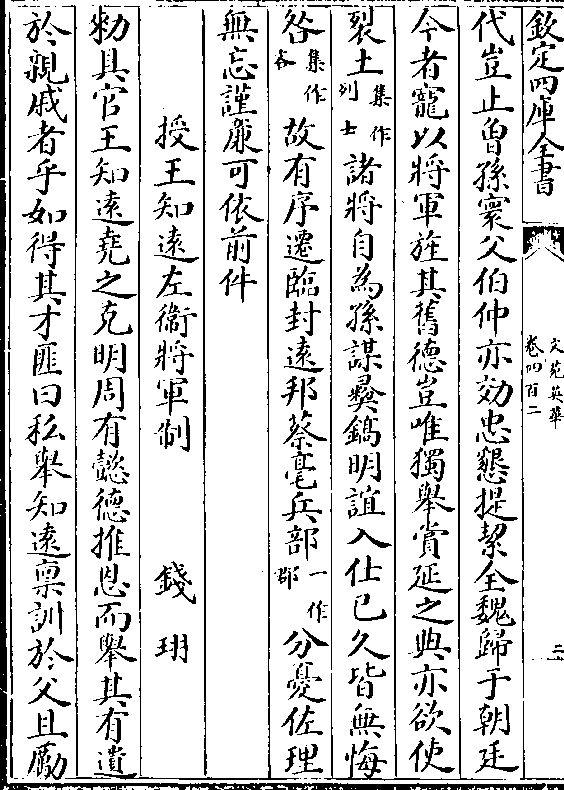 欽定四庫全書
文苑英華
卷四百二
二
代豈止曾孫寰父伯仲亦効忠懇提挈全魏歸于朝廷
今者寵以將軍旌其舊德豈唯獨舉賞延之典亦欲使
裂土集作列士諸將自為孫謀彝鐫明誼入仕已久皆無悔
咎集作吝故有序遷臨封遠邦蔡亳兵部一作郡分憂佐理
無忘謹廉可依前件
授王知遠左衞將軍制 錢珝
勑具官王知遠堯之克明周有懿德推恩而舉其有遺
於親戚者乎如得其才匪曰私舉知遠稟訓於父且勵